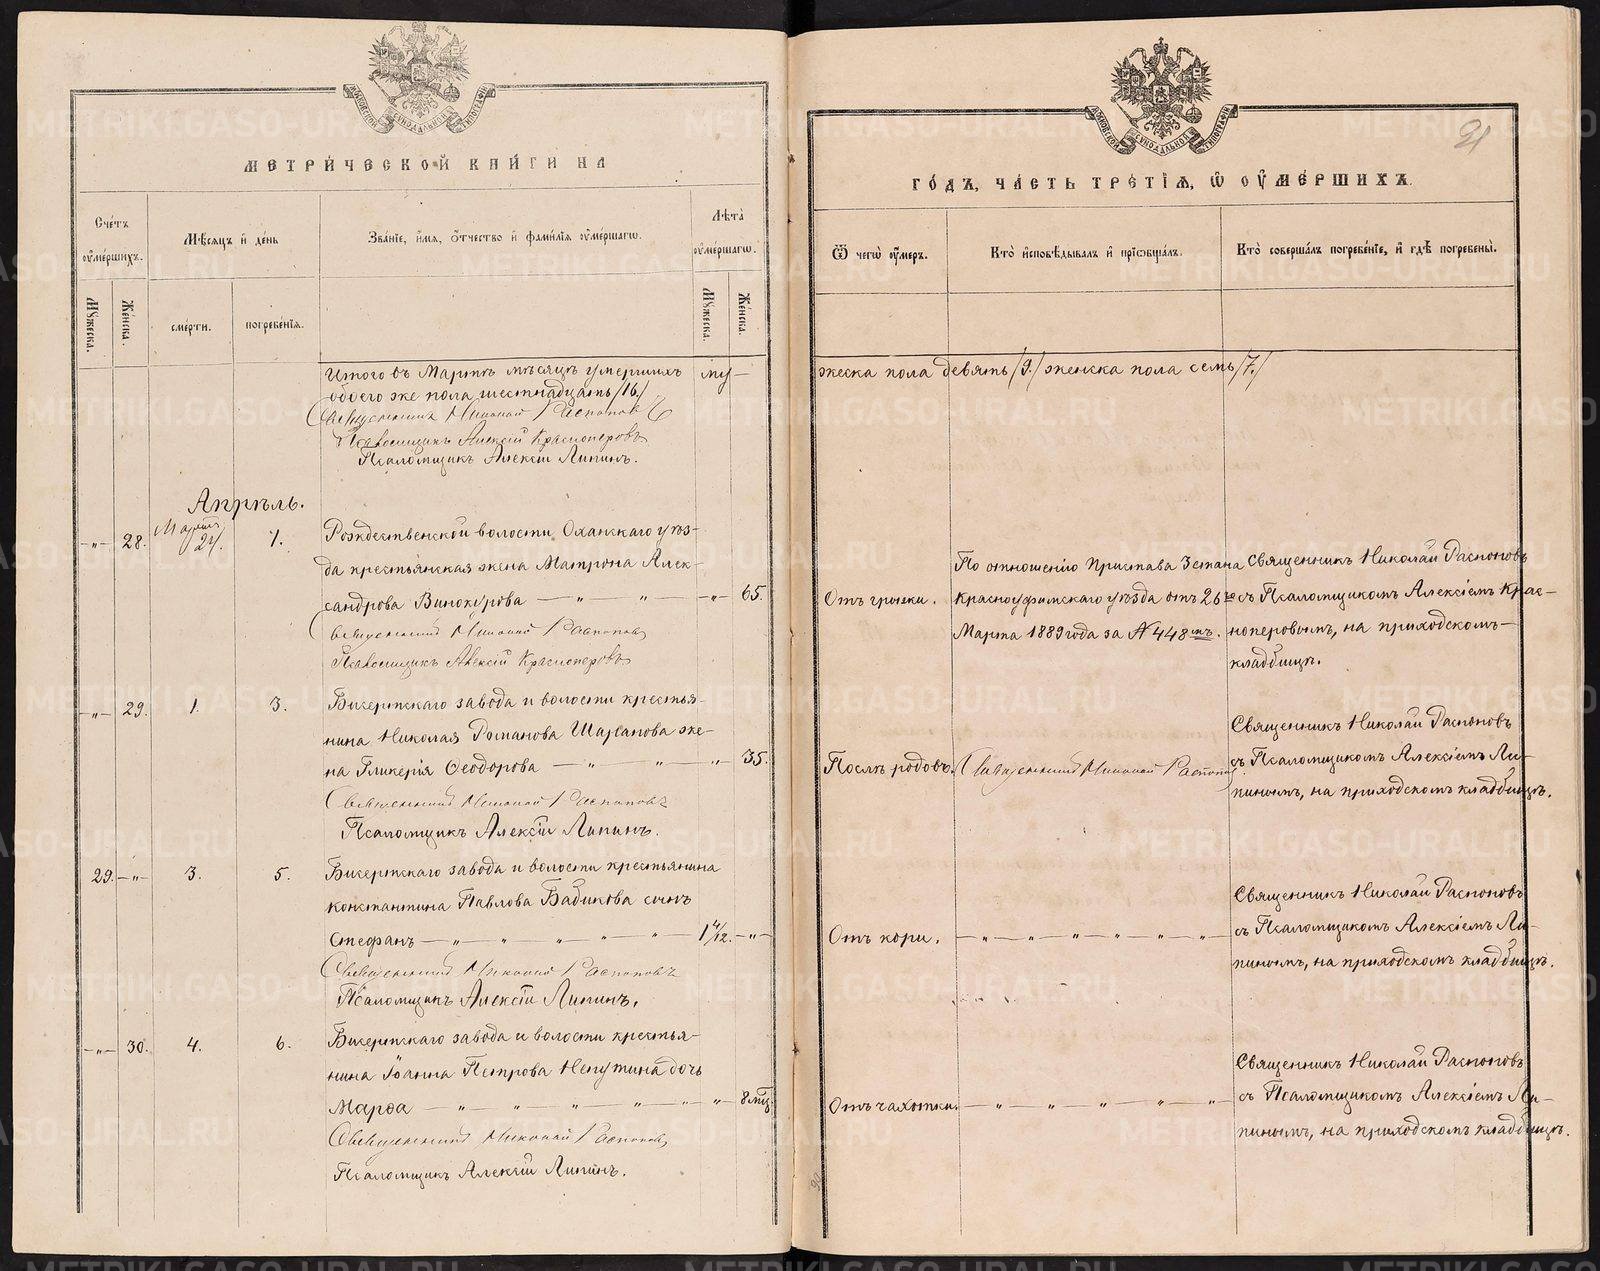 МОСКОВСКОЙ СѴНОДАЛЬНОЙ ТИПОГРАФІИ
МЕТРИ́ЧЕСКОЙ КНИ́ГИ НА
Сче́тъ ᲂу҆ме́ршихъ.
Мꙋ́жеска.
Же́нска.
Мѣ́сяцъ и҆ де́нь
сме́рти.
погребе́нїѧ.
Зва́нїе, и҆́мѧ, ѻ҆́тчество и҆ фами́лїѧ ᲂу҆ме́ршагѡ.
Лѣ́та ᲂу҆ме́ршагѡ.
Мꙋ́жеска.
Же́нска.
Итого въ Мартѣ мѣсяцѣ умершихъ му—
обоего же пола шестнадцать /16/
Священникъ Николай Распоповъ
Псаломщикъ Алексій Красноперовъ
Псаломщикъ Алексій Липинъ.
Апрѣль.
—„— 28. Марта 24. 1. Рождественской волости Оханскаго уѣз-
да крестьянская жена Матрона Алек-
сандрова Винокурова — „ — „ — —„— 65.
Священникъ Николай Распоповъ
Псаломщикъ Алексій Красноперовъ
—„— 29. 1. 3. Бисертскаго завода и волости крестья-
нина Николая Романова Шарланова же-
на Гликерія Ѳеодорова — „ — „ — „ — 35.
Священникъ Николай Распоповъ
Псаломщикъ Алексій Липинъ.
29. —„— 3. 5. Бисертскаго завода и волости крестьянина
Константина Павлова Бабикова сынъ
Стефанъ — „ — „ — „ — „ — „ — 1 4/12. —„—
Священникъ Николай Распоповъ
Псаломщикъ Алексій Липинъ.
—„— 30. 4. 6. Бисертскаго завода и волости крестья-
нина Іоанна Петрова Непутина дочь
Марѳа — „ — „ — „ — „ — „ — „ — 8 мц.
Священникъ Николай Распоповъ
Псаломщикъ Алексій Липинъ.
МОСКОВСКОЙ СѴНОДАЛЬНОЙ ТИПОГРАФІИ
21
ГО́ДЪ, ЧА́СТЬ ТРЕ́ТЇѦ, Ѡ҆ ОУ҆МЕ́РШИХЪ.
Ѿ чегѡ̀ ᲂу҆́меръ.
Кто̀ и҆сповѣ́дывалъ и҆ прїѡбща́лъ.
Кто̀ соверша́лъ погребе́нїе, и҆ гдѣ̀ погребены̀.
жеска пола девять /9./ женска пола семь /7./
Отъ грыжи.
По отношенію Пристава 3 стана
Красноуфимскаго уѣзда отъ 26го
Марта 1889 года за № 448мъ.
Священникъ Николай Распоповъ
съ Псаломщикомъ Алексіемъ Крас-
ноперовымъ, на приходскомъ
кладбищѣ.
Послѣ родовъ.
Священникъ Николай Распоповъ
Священникъ Николай Распоповъ
съ Псаломщикомъ Алексіемъ Ли-
пинымъ, на приходскомъ кладбищѣ.
Отъ кори.
— „ — „ — „ — „ — „ — „
Священникъ Николай Распоповъ
съ Псаломщикомъ Алексіемъ Ли-
пинымъ, на приходскомъ кладбищѣ.
Отъ чахотки.
— „ — „ — „ — „ — „
Священникъ Николай Распоповъ
съ Псаломщикомъ Алексіемъ Ли-
пинымъ, на приходскомъ кладбищѣ.
METRIKI.GASO-URAL.RU